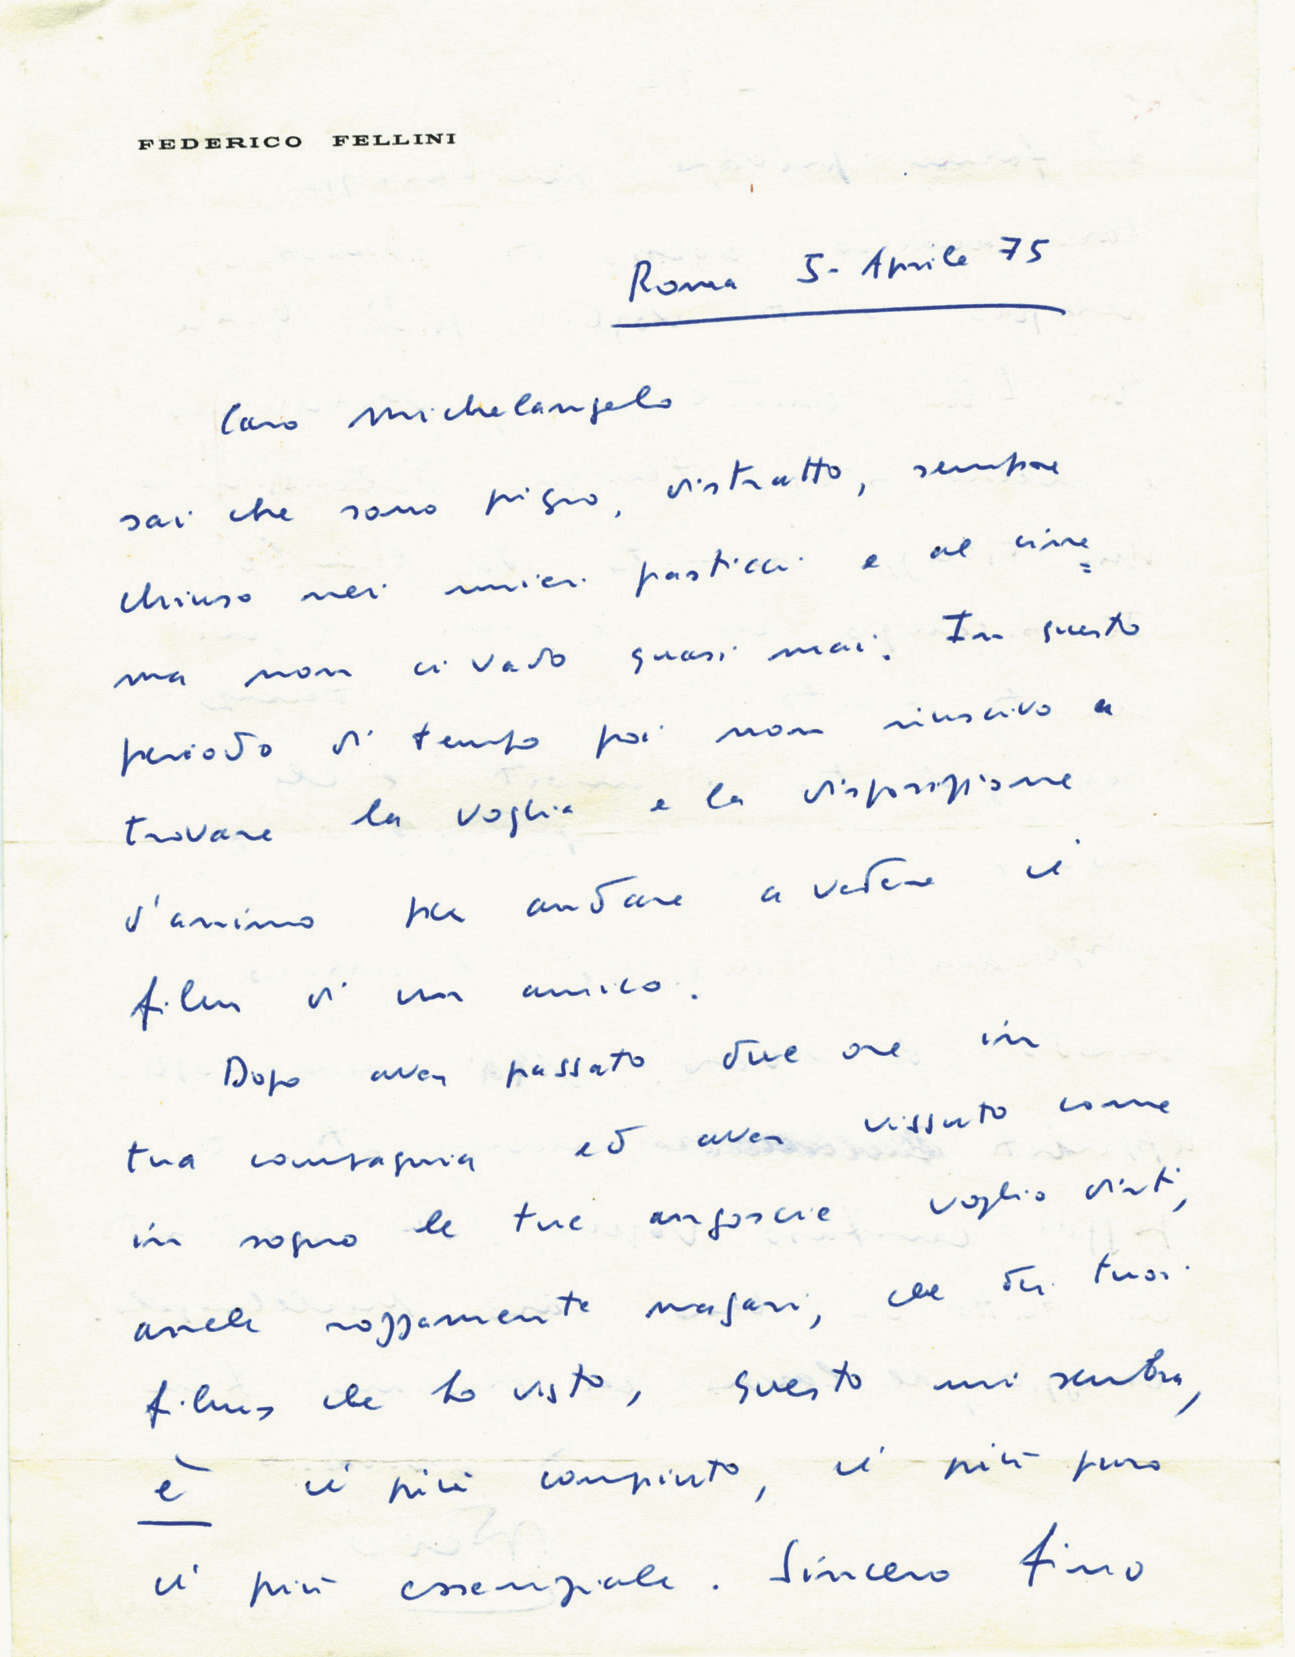 FEDERICO FELLINI
Roma 5-Aprile 75
Caro Michelangelo
sai che sono pigro, distratto, sempre
chiuso nei miei pasticci e al cine=
ma non ci vado quasi mai. In questo
periodo di tempo poi non riuscivo a
trovare la voglia e la disposizione
d'animo per andare a vedere il
film di un amico.
Dopo aver passato due ore in
tua compagnia ed aver vissuto come
in sogno le tue angoscie voglio dirti,
anche rozzamente magari, che dei tuoi
films che ho visto, questo mi sembra,
è il più compiuto, il più puro
il più essenziale. Sincero fino